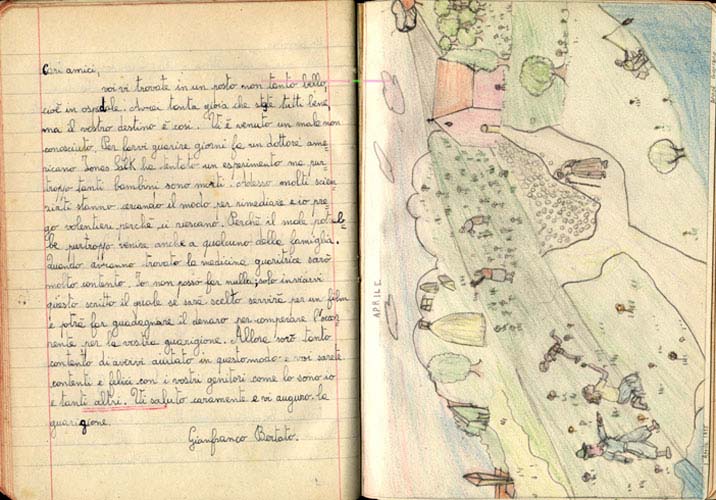 Cari amici,
voi vi trovate in un posto non tanto bello,
cioè in ospedale. Avrei tanta gioia che state tutti bene,
ma il vostro destino è così. Vi è venuto un male non
conosciuto. Per farvi guarire giorni fa un dottore ame-
ricano Jonas Salk ha tentato un esperimento ma pur-
troppo tanti bambini sono morti. Adesso molti scien
ziati stanno cercando il modo per rimediare e io pre-
go volentieri perchè ci riescano. Perchè il male potreb-
be purtroppo venire anche a qualcuno della famiglia.
Quando avranno trovato la medicina guaritrice sarò
molto contento. Io non posso far nulla; solo inviarvi
questo scritto il quale se sarà scelto servirà per un film
e potrà far guadagnare il denaro per comperare l'occor-
rente per la vostra guarigione. Allora sarò tanto
contento di avervi aiutato in questo modo e voi sarete
contenti e felici con i vostri genitori come lo sono io
e tanti altri. Vi saluto caramente e vi auguro la
guarigione.
Gianfranco Bertato.
APRILE